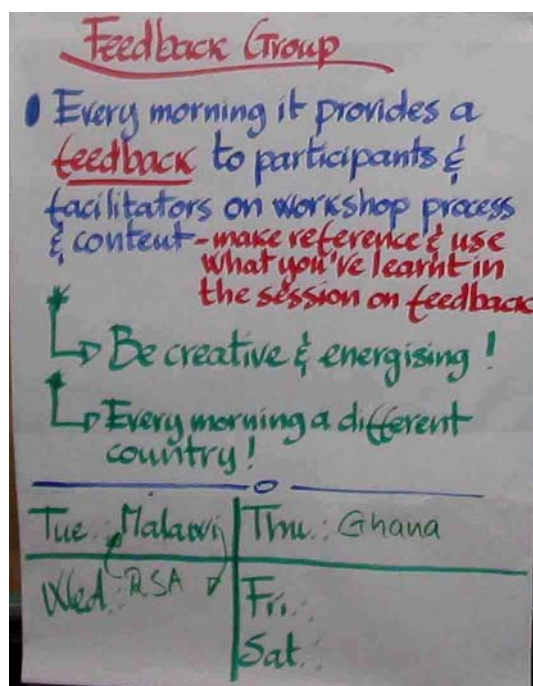 Feedback Group
Every morning it provides a
feedback to participants &
facilitators on workshop process
& content - make reference & use
what you've learnt in
the session on feedback
Be creative & energising !
Every morning a different
country !
Tue : Malawi
Thu : Ghana
Wed : RSA
Fri :
Sat :